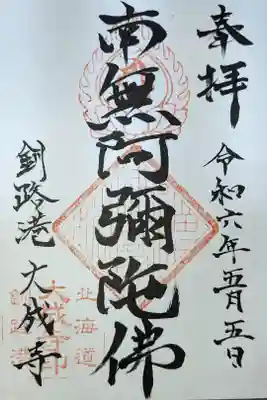 奉拝
令和六年五月五日
南無阿彌陀佛
釧路港 大成寺
北海道
大成寺
釧路港